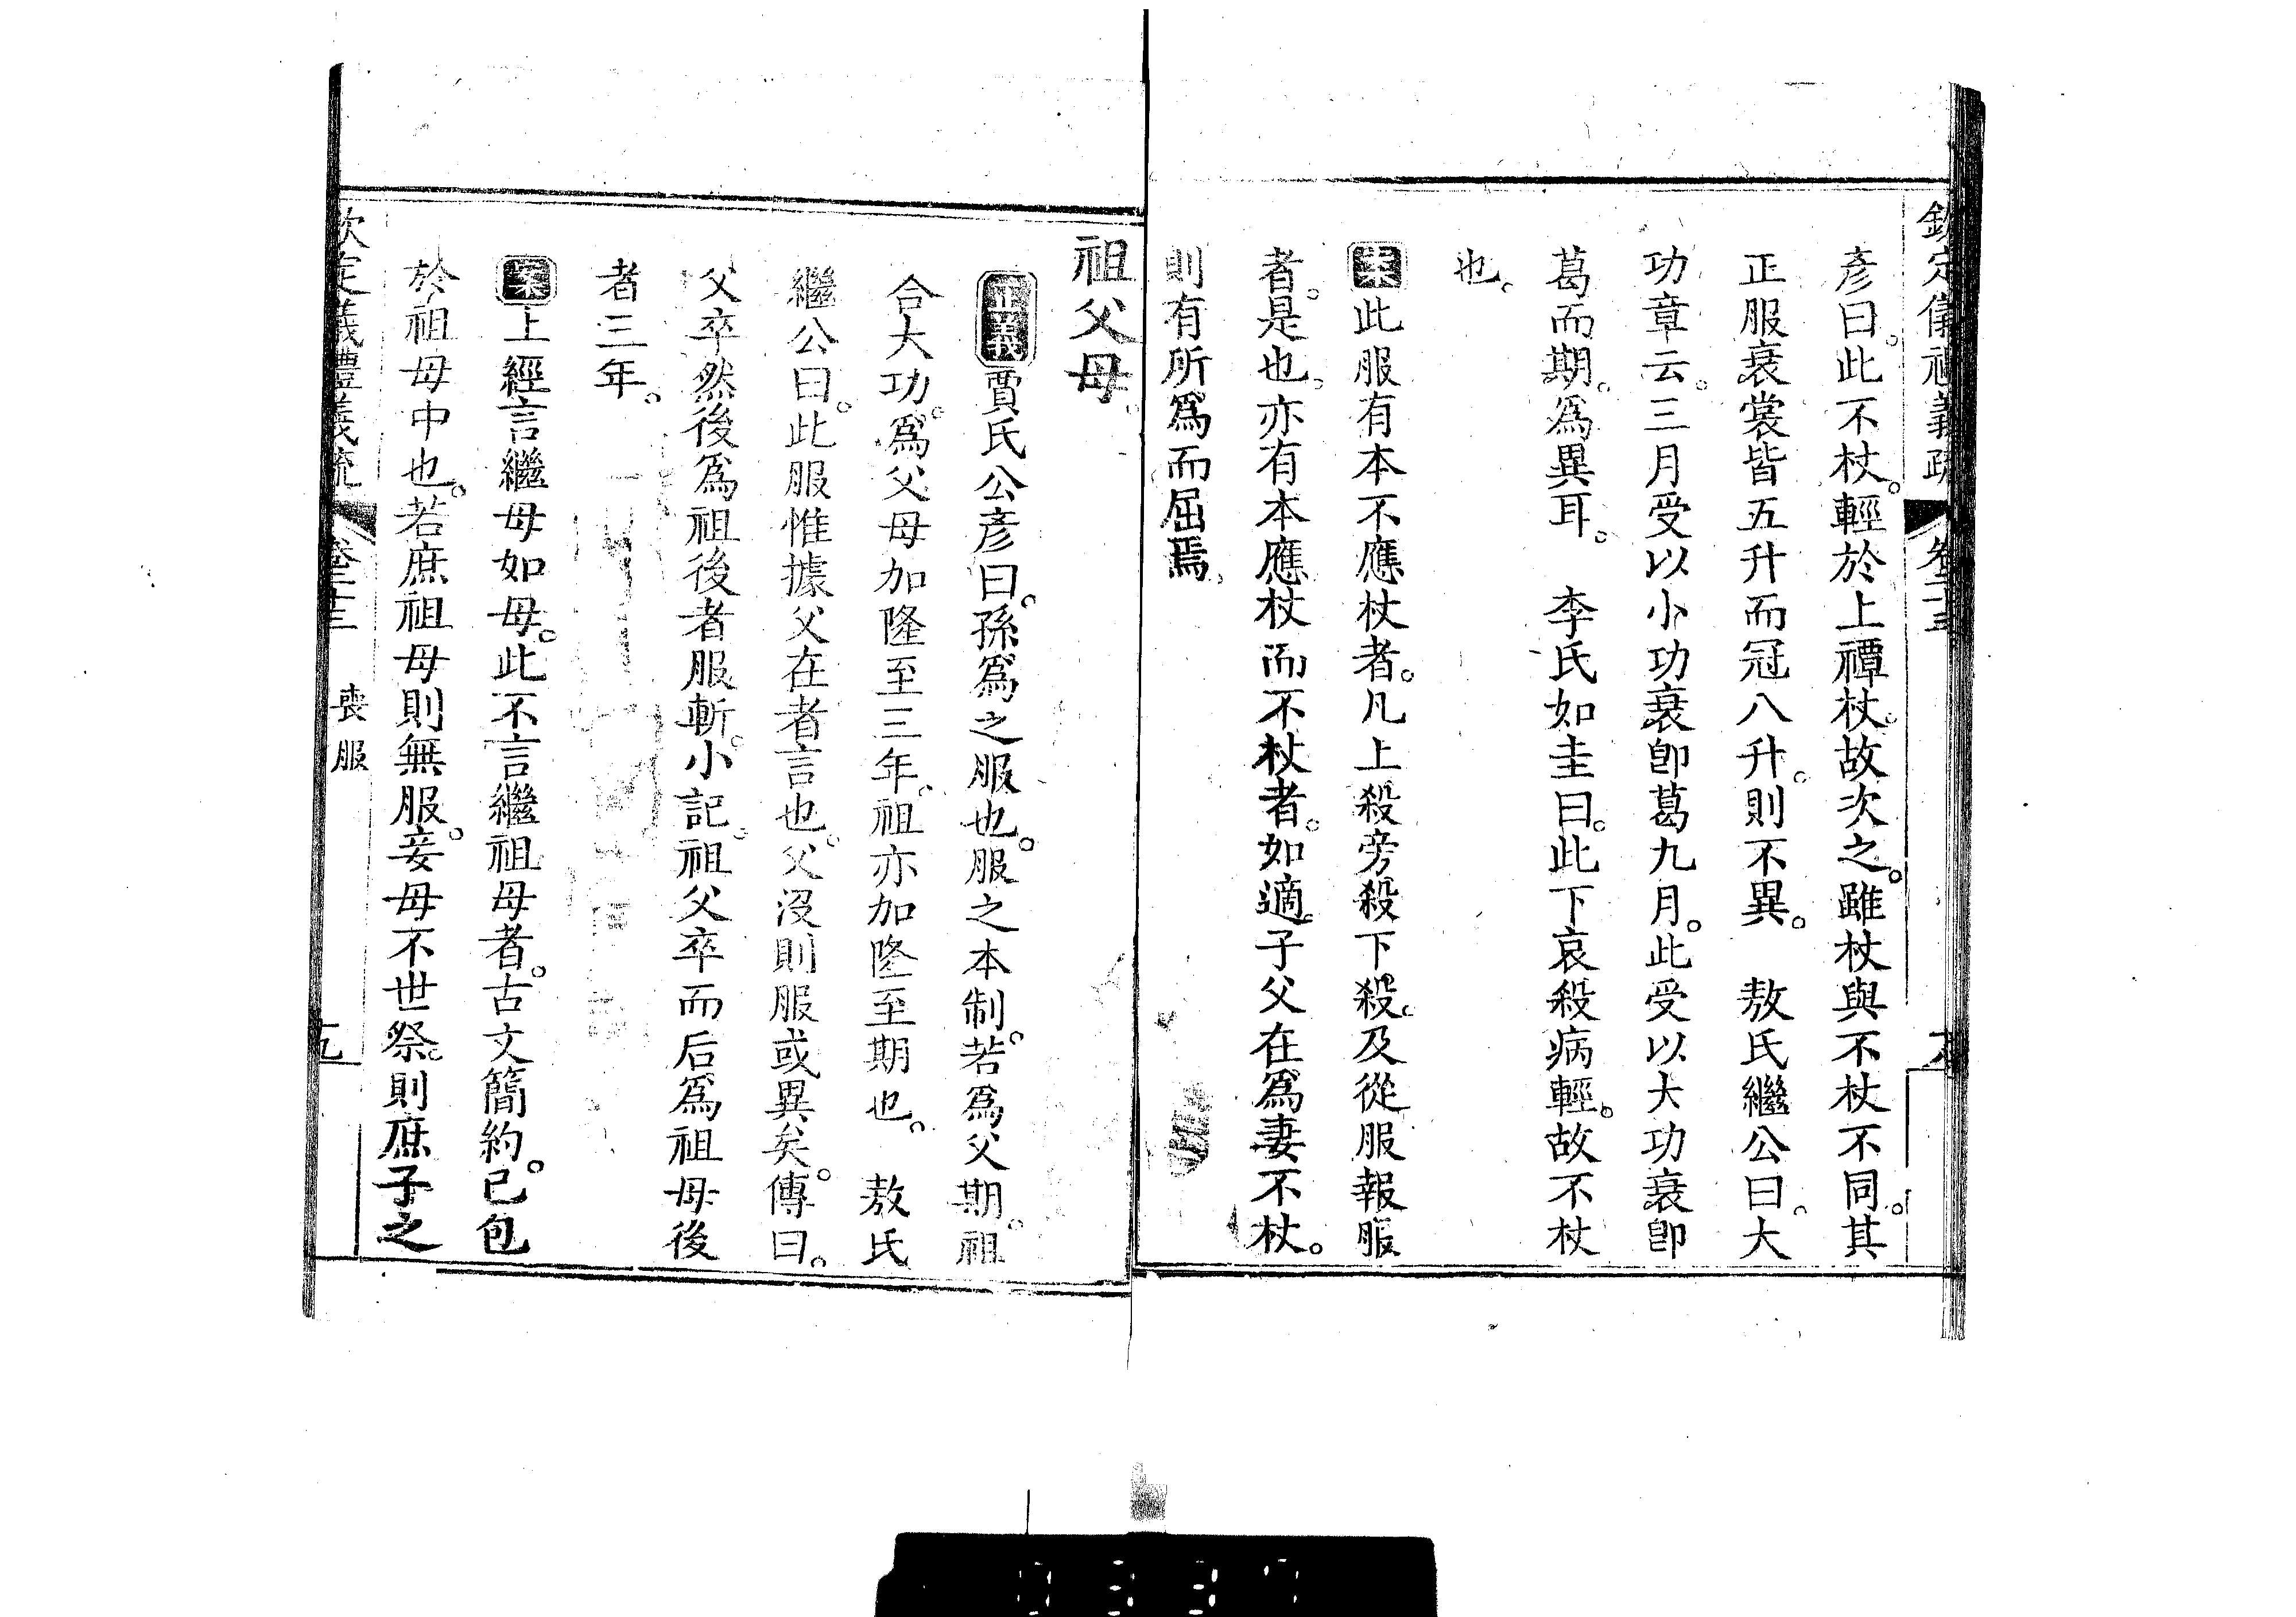 欽定儀禮義疏 卷二十三
彥曰。此不杖。輕於上禫杖。故次之。雖杖與不杖不同。其
正服衰裳皆五升而冠八升。則不異。 敖氏繼公曰。大
功章云。三月受以小功衰卽葛九月。此受以大功衰卽
葛而期。爲異耳。 李氏如圭曰。此下哀殺病輕。故不杖
也。
案此服有本不應杖者。凡上殺旁殺下殺。及從服報服
者。是也。亦有本應杖而不杖者。如適子父在爲妻不杖。
則有所爲而屈焉。
祖父母。
正義賈氏公彥曰。孫爲之服也。服之本制。若爲父期。祖
合大功。爲父母加隆至三年。祖亦加隆至期也。 敖氏
繼公曰。此服惟據父在者言也。父沒則服或異矣。傳曰。
父卒然後爲祖後者服斬。小記。祖父卒而后爲祖母後
者三年。
案上經言繼母如母。此不言繼祖母者。古文簡約。已包
於祖母中也。若庶祖母則無服。妾母不世祭。則庶子之
欽定儀禮義疏 卷二十三 喪服 九